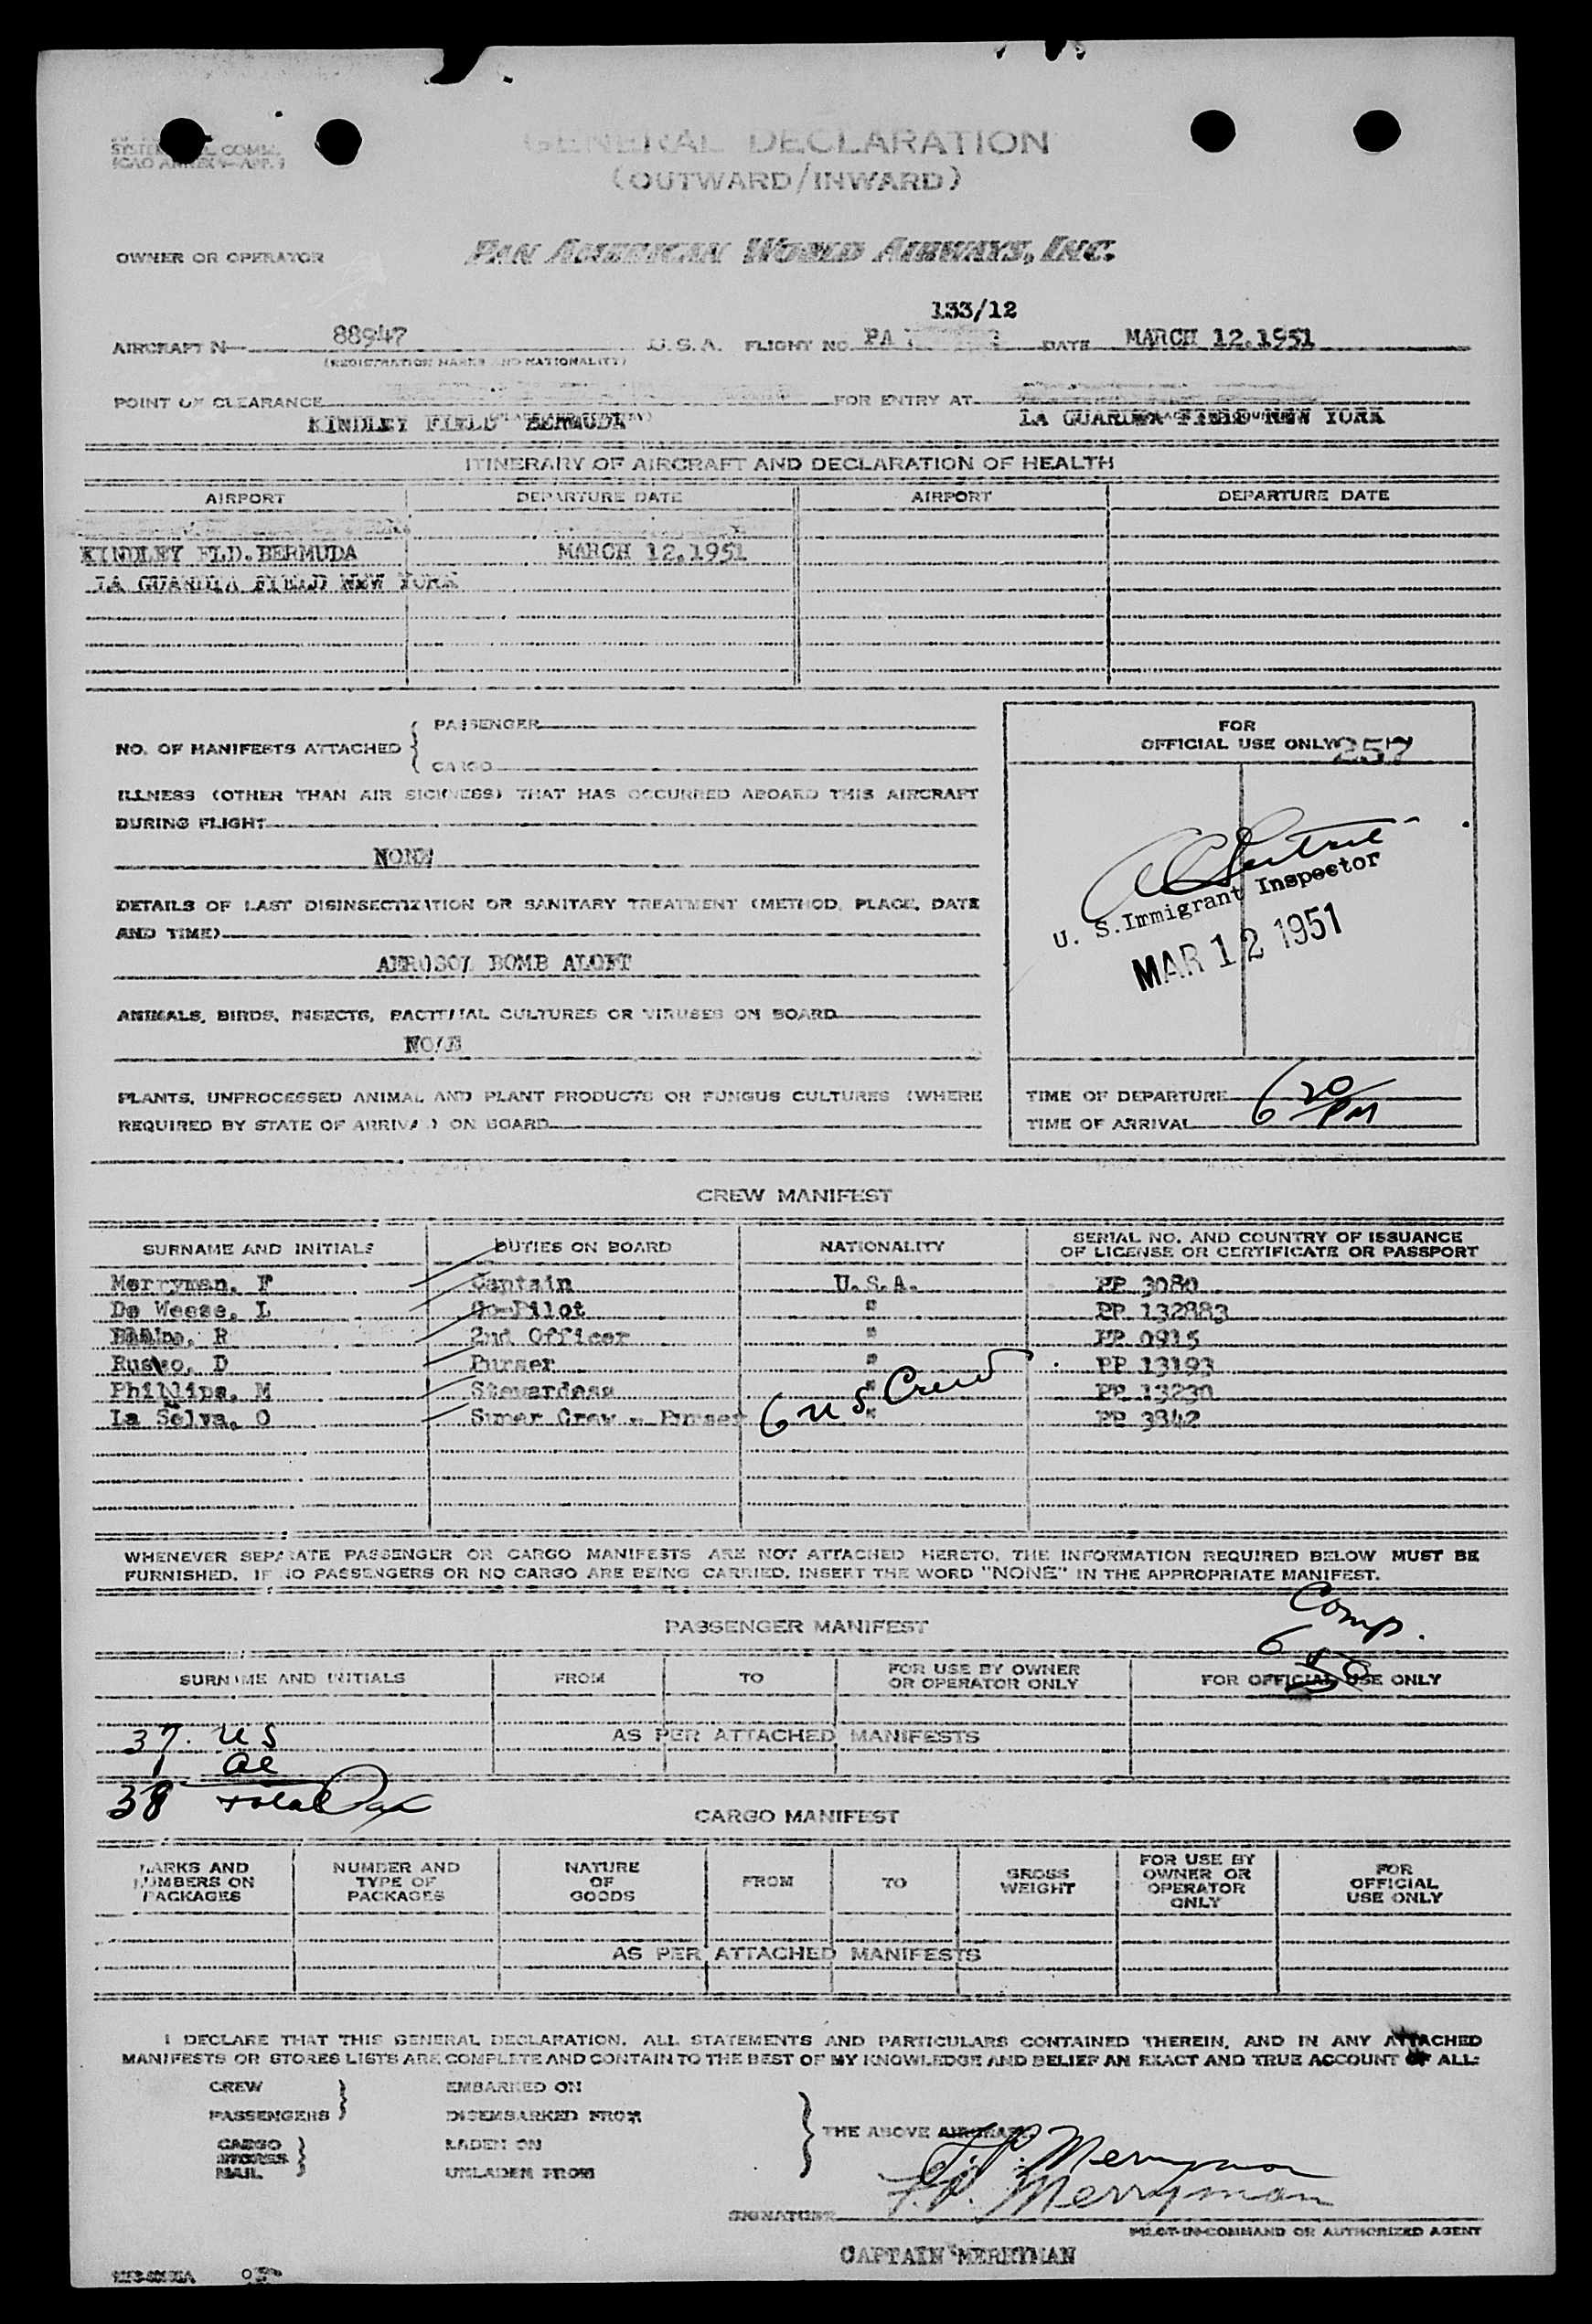 GENERAL DECLARATION
(OUTWARD/INWARD)
OWNER OR OPERATOR PAN AMERICAN WORLD AIRWAYS, INC.
133/12
AIRCRAFT N— 88947 U.S.A. FLIGHT NO. PA DATE MARCH 12.1951
(REGISTRATION MARKS AND NATIONALITY)
POINT OF CLEARANCE FOR ENTRY AT
KINDLEY FIELD BERMUDA LA GUARDIA FIELD NEW YORK
ITINERARY OF AIRCRAFT AND DECLARATION OF HEALTH
AIRPORT DEPARTURE DATE AIRPORT DEPARTURE DATE
KINDLEY FLD.BERMUDA MARCH 12.1951
LA GUARDIA FIELD NEW YORK
NO. OF MANIFESTS ATTACHED { PASSENGER
CARGO
FOR
OFFICIAL USE ONLY 257
ILLNESS (OTHER THAN AIR SICKNESS) THAT HAS OCCURRED ABOARD THIS AIRCRAFT
DURING FLIGHT
NONE
U. S. Immigrant Inspector
MAR 12 1951
DETAILS OF LAST DISINSECTIZATION OR SANITARY TREATMENT (METHOD, PLACE, DATE
AND TIME)
AEROSOL BOMB ALOFT
ANIMALS, BIRDS, INSECTS, BACTERIAL CULTURES OR VIRUSES ON BOARD
NONE
PLANTS, UNPROCESSED ANIMAL AND PLANT PRODUCTS OR FUNGUS CULTURES (WHERE
REQUIRED BY STATE OF ARRIVAL) ON BOARD
TIME OF DEPARTURE
TIME OF ARRIVAL 6 20/PM
CREW MANIFEST
SURNAME AND INITIALS DUTIES ON BOARD NATIONALITY SERIAL NO. AND COUNTRY OF ISSUANCE
OF LICENSE OR CERTIFICATE OR PASSPORT
Merryman, F Captain U.S.A. PP 3080
De Weese, L Co-Pilot " PP 132883
R 2nd Officer " PP 0915
D Purser " PP 13193
Phillips, M Stewardess " PP 13230
La Selva, O Super Crew - Purser " PP 3842
6 US Crew
WHENEVER SEPARATE PASSENGER OR CARGO MANIFESTS ARE NOT ATTACHED HERETO, THE INFORMATION REQUIRED BELOW MUST BE
FURNISHED. IF NO PASSENGERS OR NO CARGO ARE BEING CARRIED, INSERT THE WORD "NONE" IN THE APPROPRIATE MANIFEST.
Comp.
PASSENGER MANIFEST
6
SURNAME AND INITIALS FROM TO FOR USE BY OWNER
OR OPERATOR ONLY FOR OFFICIAL USE ONLY
37. US
AS PER ATTACHED MANIFESTS
1 al
38 total Pax
CARGO MANIFEST
MARKS AND
NUMBERS ON
PACKAGES NUMBER AND
TYPE OF
PACKAGES NATURE
OF
GOODS FROM TO GROSS
WEIGHT FOR USE BY
OWNER OR
OPERATOR
ONLY FOR
OFFICIAL
USE ONLY
AS PER ATTACHED MANIFESTS
I DECLARE THAT THIS GENERAL DECLARATION, ALL STATEMENTS AND PARTICULARS CONTAINED THEREIN, AND IN ANY ATTACHED
MANIFESTS OR STORES LISTS ARE COMPLETE AND CONTAIN TO THE BEST OF MY KNOWLEDGE AND BELIEF AN EXACT AND TRUE ACCOUNT OF ALL:
CREW } EMBARKED ON
PASSENGERS DISEMBARKED FROM
CARGO
STORES
MAIL } LADEN ON
UNLADEN FROM
} THE ABOVE AIRCRAFT
F.P. Merryman
F.P. Merryman
SIGNATURE
PILOT-IN-COMMAND OR AUTHORIZED AGENT
CAPTAIN MERRYMAN